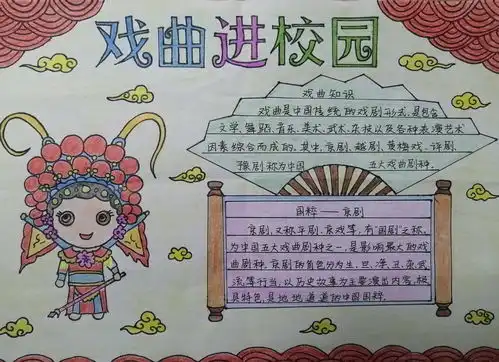 戏曲进校园
戏曲知识
戏曲是中国传统的戏剧形式,是包含
文学、舞蹈、音乐、美术、武术、杂技以及各种表演艺术
因素综合而成的。其中,京剧、越剧、黄梅戏、评剧、
豫剧称为中国 五大戏曲剧种。
国粹——京剧
京剧,又称平剧、京戏等,有"国剧"之称,
为中国五大戏曲剧种之一,是影响最大的戏
曲剧种,京剧的角色分为生、旦、净、丑、杂、武、
流等行当,以历史故事为主要演出内容,极
具特色,是地地道道的中国国粹。